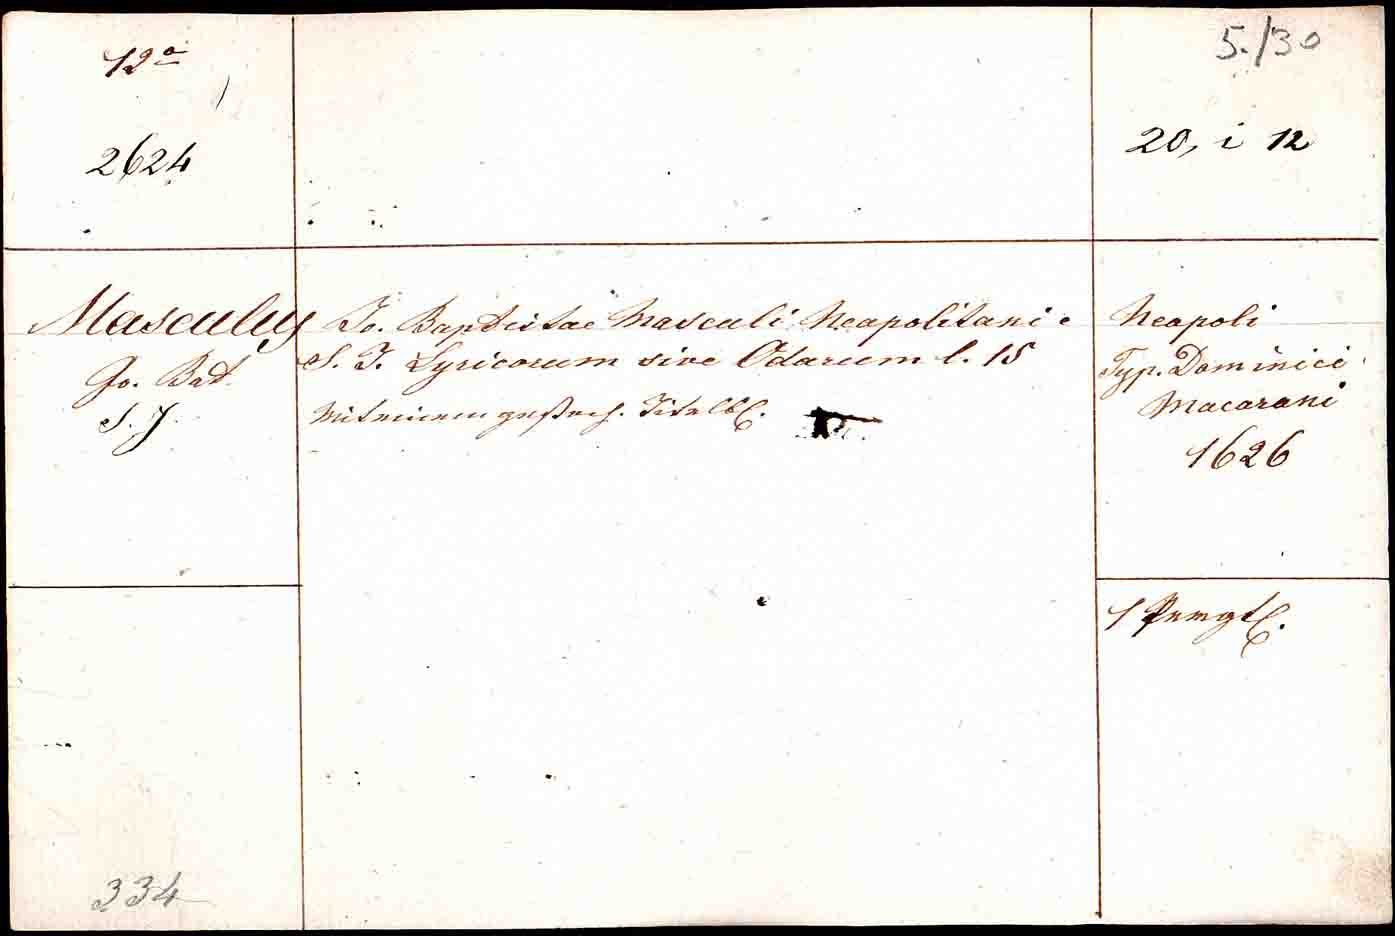 12º
2624
5./30
20, i 12
Masculus
Jo. Bat.
S. J.
Jo. Baptistae Masculi Neapolitani e
S. J. Lyricorum sive Odarum l. 15
Mit einem gestoch. Titelbl.
Neapoli
Typ. Dominici
Macarani
1626
1 Prmgt.
334